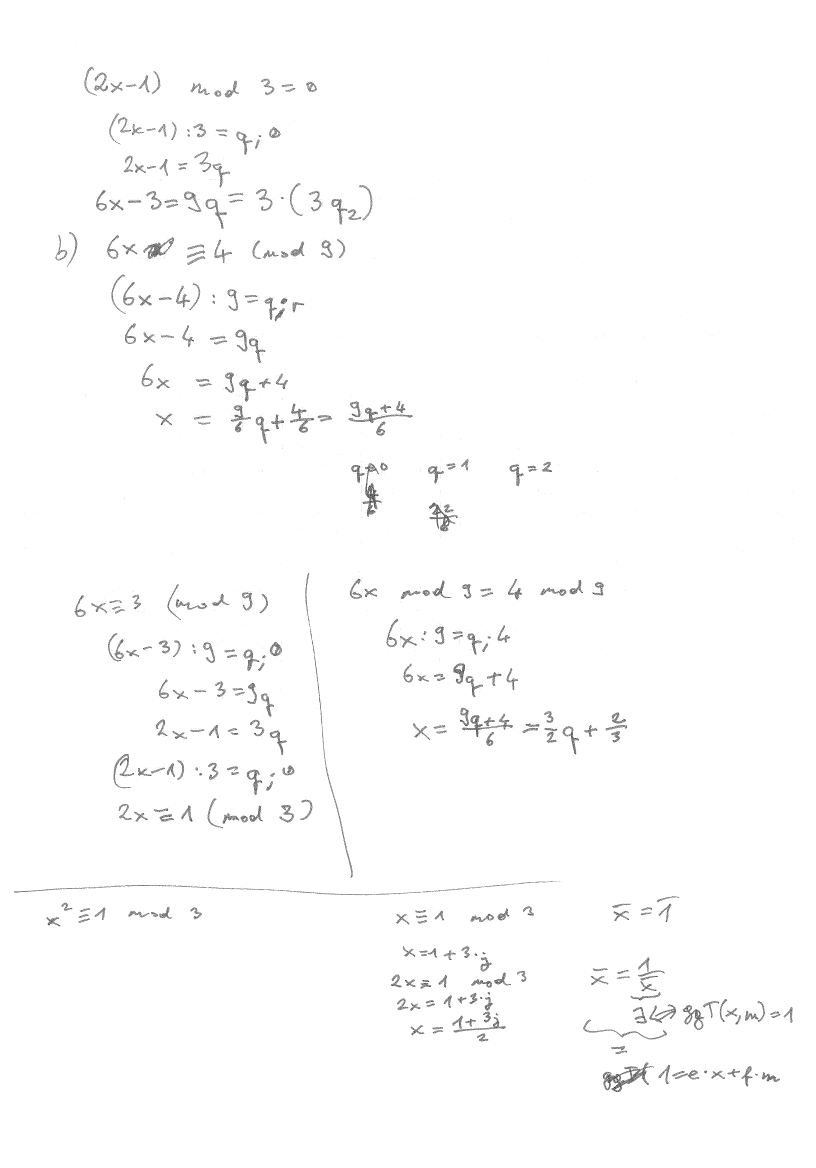 (2x-1) mod 3 = 0
(2x-1) : 3 = q; 0
2x-1 = 3q
6x-3 = 9q = 3·(3q₂)
b) 6x ≡ 4 (mod 9)
(6x-4) : 9 = q; r
6x-4 = 9q
6x = 9q+4
x = 9/6 q + 4/6 = (9q+4)/6
q=0 q=1 q=2
6x ≡ 3 (mod 9)
(6x-3) : 9 = q; 0
6x-3 = 9q
2x-1 = 3q
(2x-1) : 3 = q; 0
2x ≡ 1 (mod 3)
6x mod 9 = 4 mod 9
6x : 9 = q; 4
6x = 9q+4
x = (9q+4)/6 = 3/2 q + 2/3
x² ≡ 1 mod 3
x ≡ 1 mod 3
x = 1+3·j
2x ≡ 1 mod 3
2x = 1+3·j
x = (1+3j)/2
x̄ = 1̄
x̄ = 1/x̄
∃ ⇔ ggT(x,m) = 1
=
1 = e·x + f·m